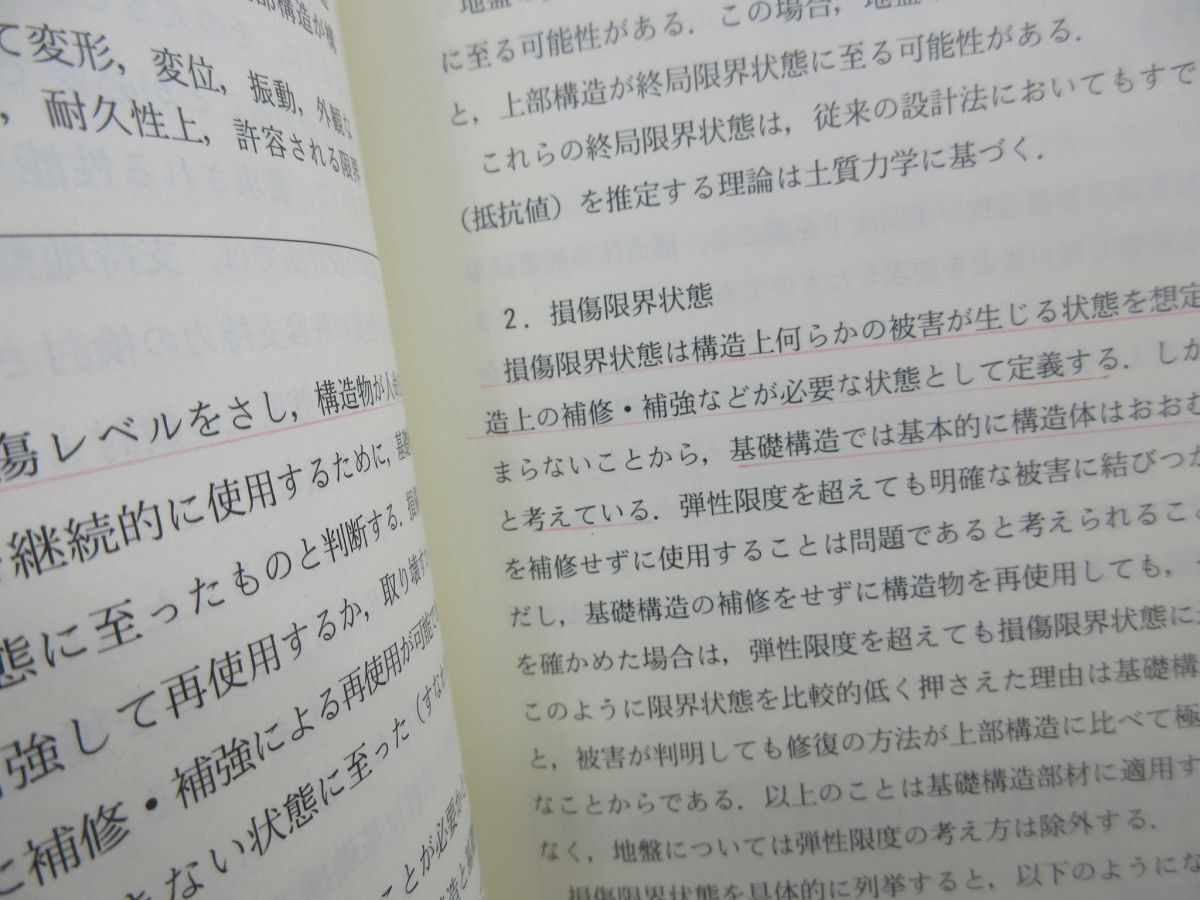 部構造が構
て変形，変位，振動，外観な
，耐久性上，許容される限界
傷レベルをさし，構造物が人命
継続的に使用するために，基礎
態に至ったものと判断する．損傷
強して再使用するか，取り壊す
に補修・補強による再使用が可能で
きない状態に至った（すなわ
ことが必要か
地盤の
に至る可能性がある．この場合，地盤
と，上部構造が終局限界状態に至る可能性がある．
これらの終局限界状態は，従来の設計法においてもすで
（抵抗値）を推定する理論は土質力学に基づく．
2．損傷限界状態
損傷限界状態は構造上何らかの被害が生じる状態を想定
造上の補修・補強などが必要な状態として定義する．しか
まらないことから，基礎構造では基本的に構造体はおおむ
と考えている．弾性限度を超えても明確な被害に結びつか
を補修せずに使用することは問題であると考えられること
だし，基礎構造の補修をせずに構造物を再使用しても，
を確かめた場合は，弾性限度を超えても損傷限界状態に
このように限界状態を比較的低く押さえた理由は基礎構
と，被害が判明しても修復の方法が上部構造に比べて極
なことからである．以上のことは基礎構造部材に適用す
なく，地盤については弾性限度の考え方は除外する．
損傷限界状態を具体的に列挙すると，以下のようにな